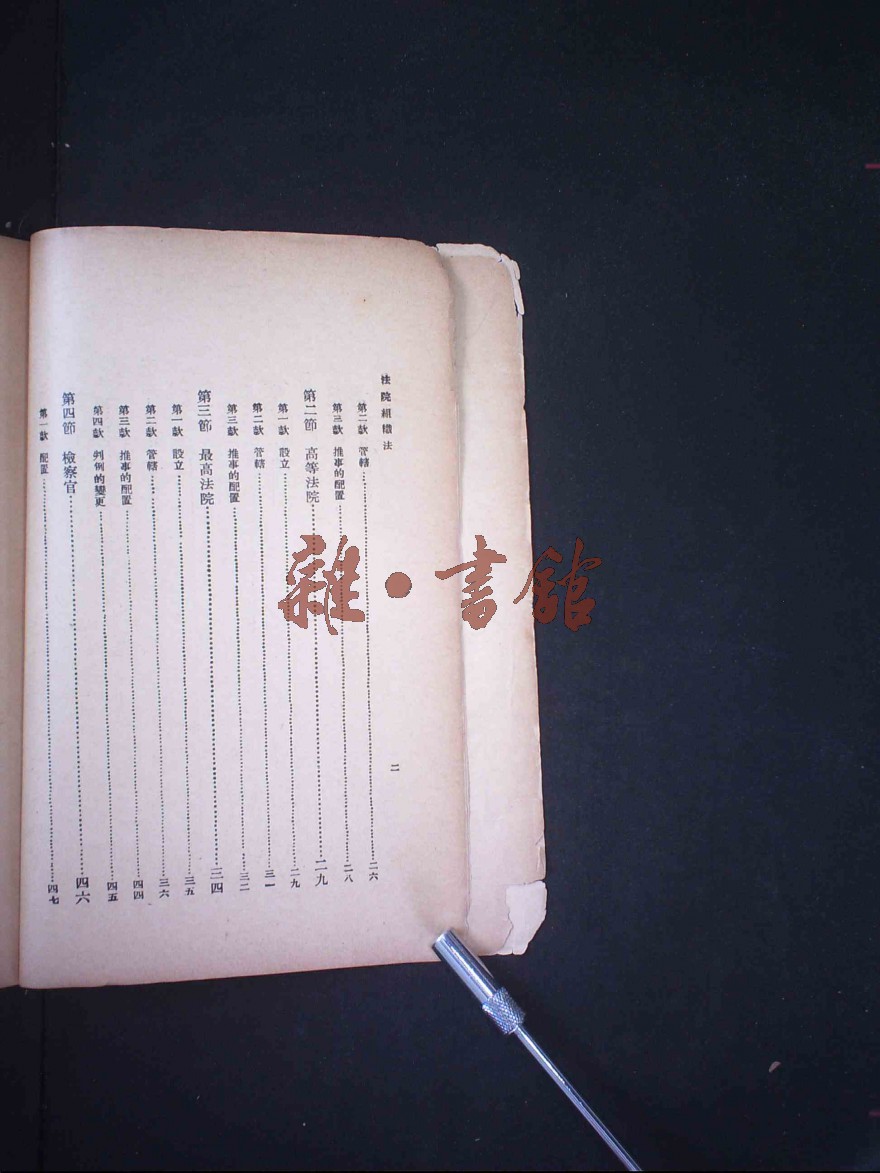 法院組織法
二
第二款 管轄……二六
第三款 推事的配置……二八
第二節 高等法院……二九
第一款 設立……二九
第二款 管轄……三一
第三款 推事的配置……三二
第三節 最高法院……三四
第一款 設立……三五
第二款 管轄……三六
第三款 推事的配置……四四
第四款 判例的變更……四五
第四節 檢察官……四六
第一款 配置……四七
雜·書館